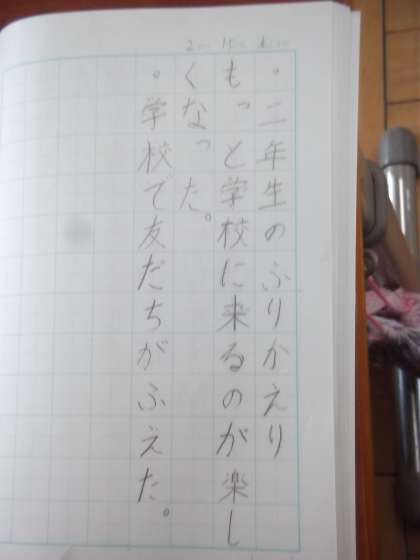 ・二年生のふりかえり
もっと学校に来るのが楽し
くなった。
・学校で友だちがふえた。